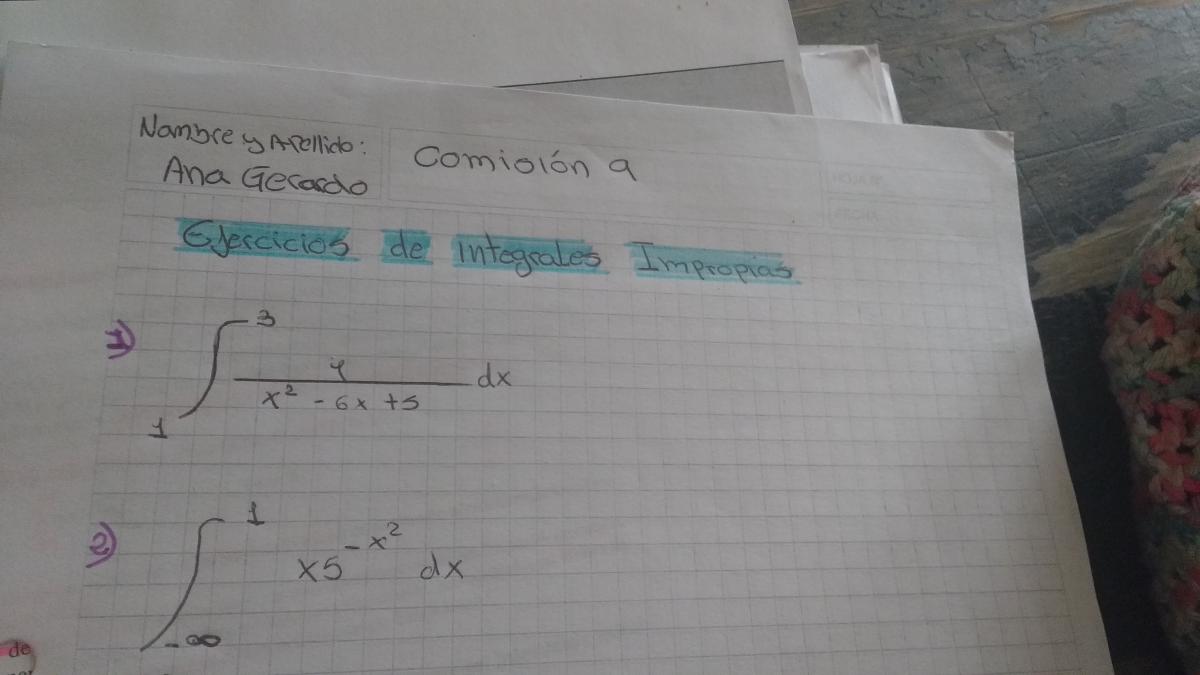 Nombre y Apellido:
Ana Gerardo
Comisión 9
Ejercicios de Integrales Impropias
1)
3
4
x² - 6x + 5
dx
1
2)
1
x5^-x² dx
-∞
de